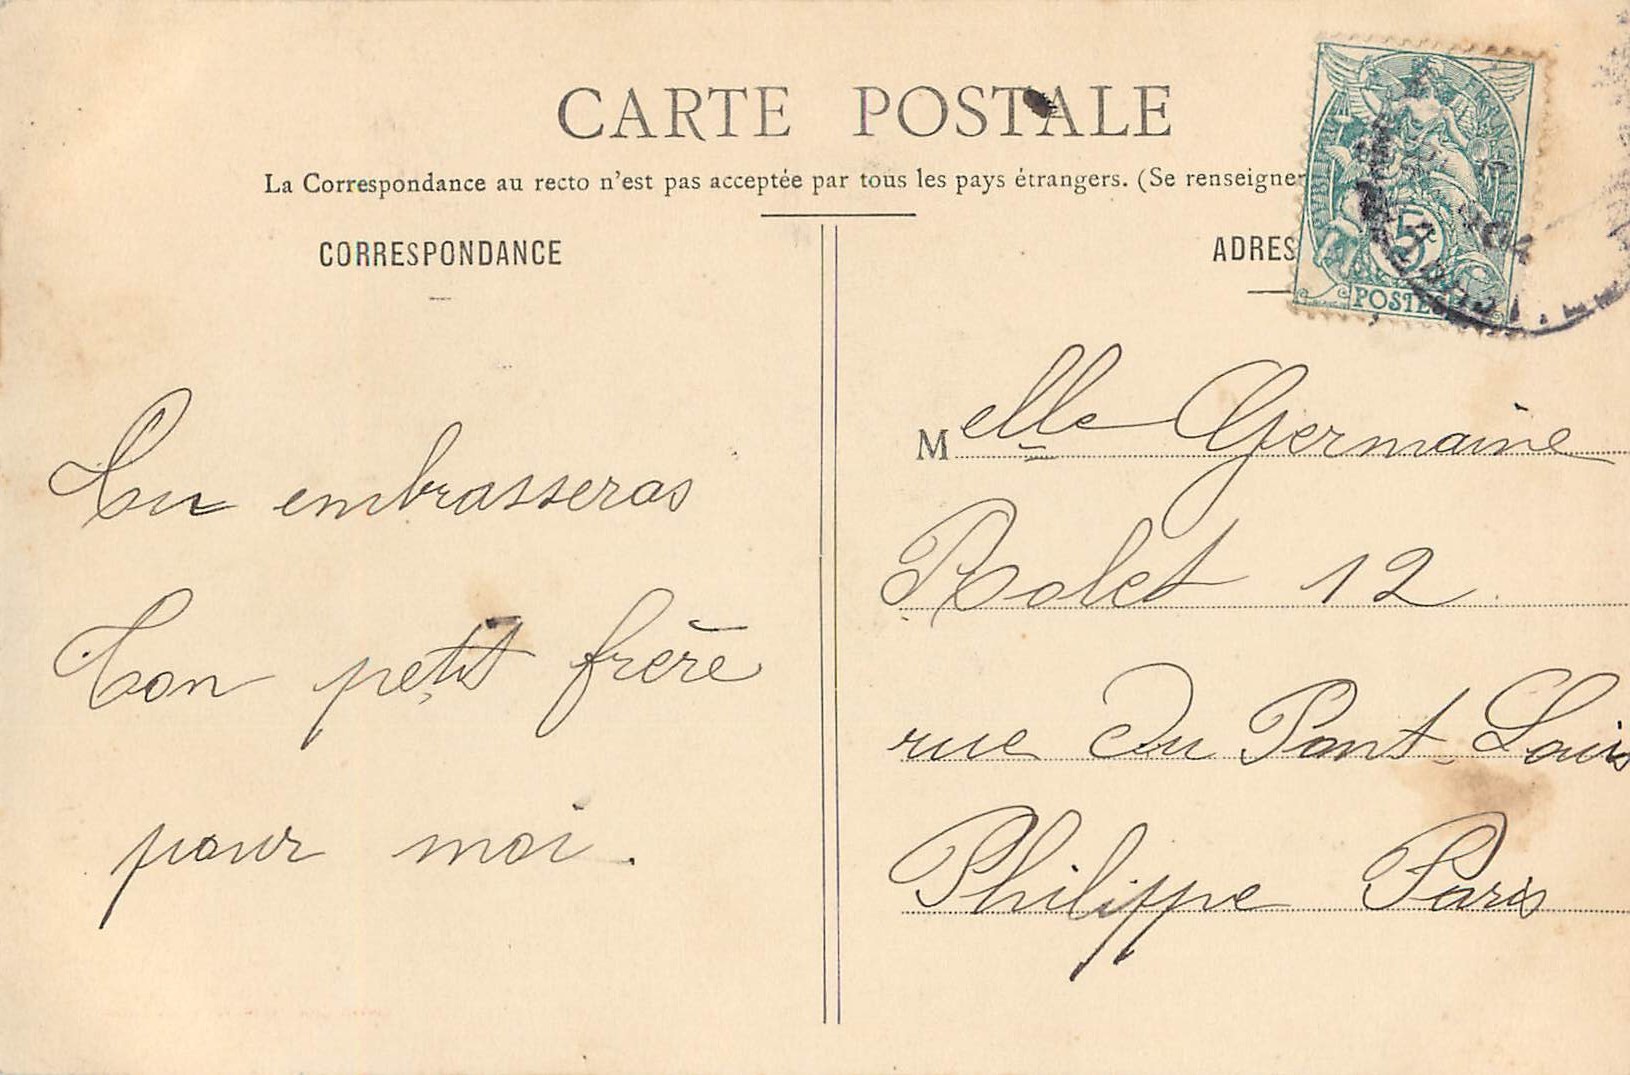 CARTE POSTALE
La Correspondance au recto n'est pas acceptée par tous les pays étrangers. (Se renseigner
CORRESPONDANCE
Tu embrasseras
Ton petit frère
pour moi.
ADRES
5
POSTES
Melle Germaine
Rolet 12
rue du Pont-Louis
Philippe Paris